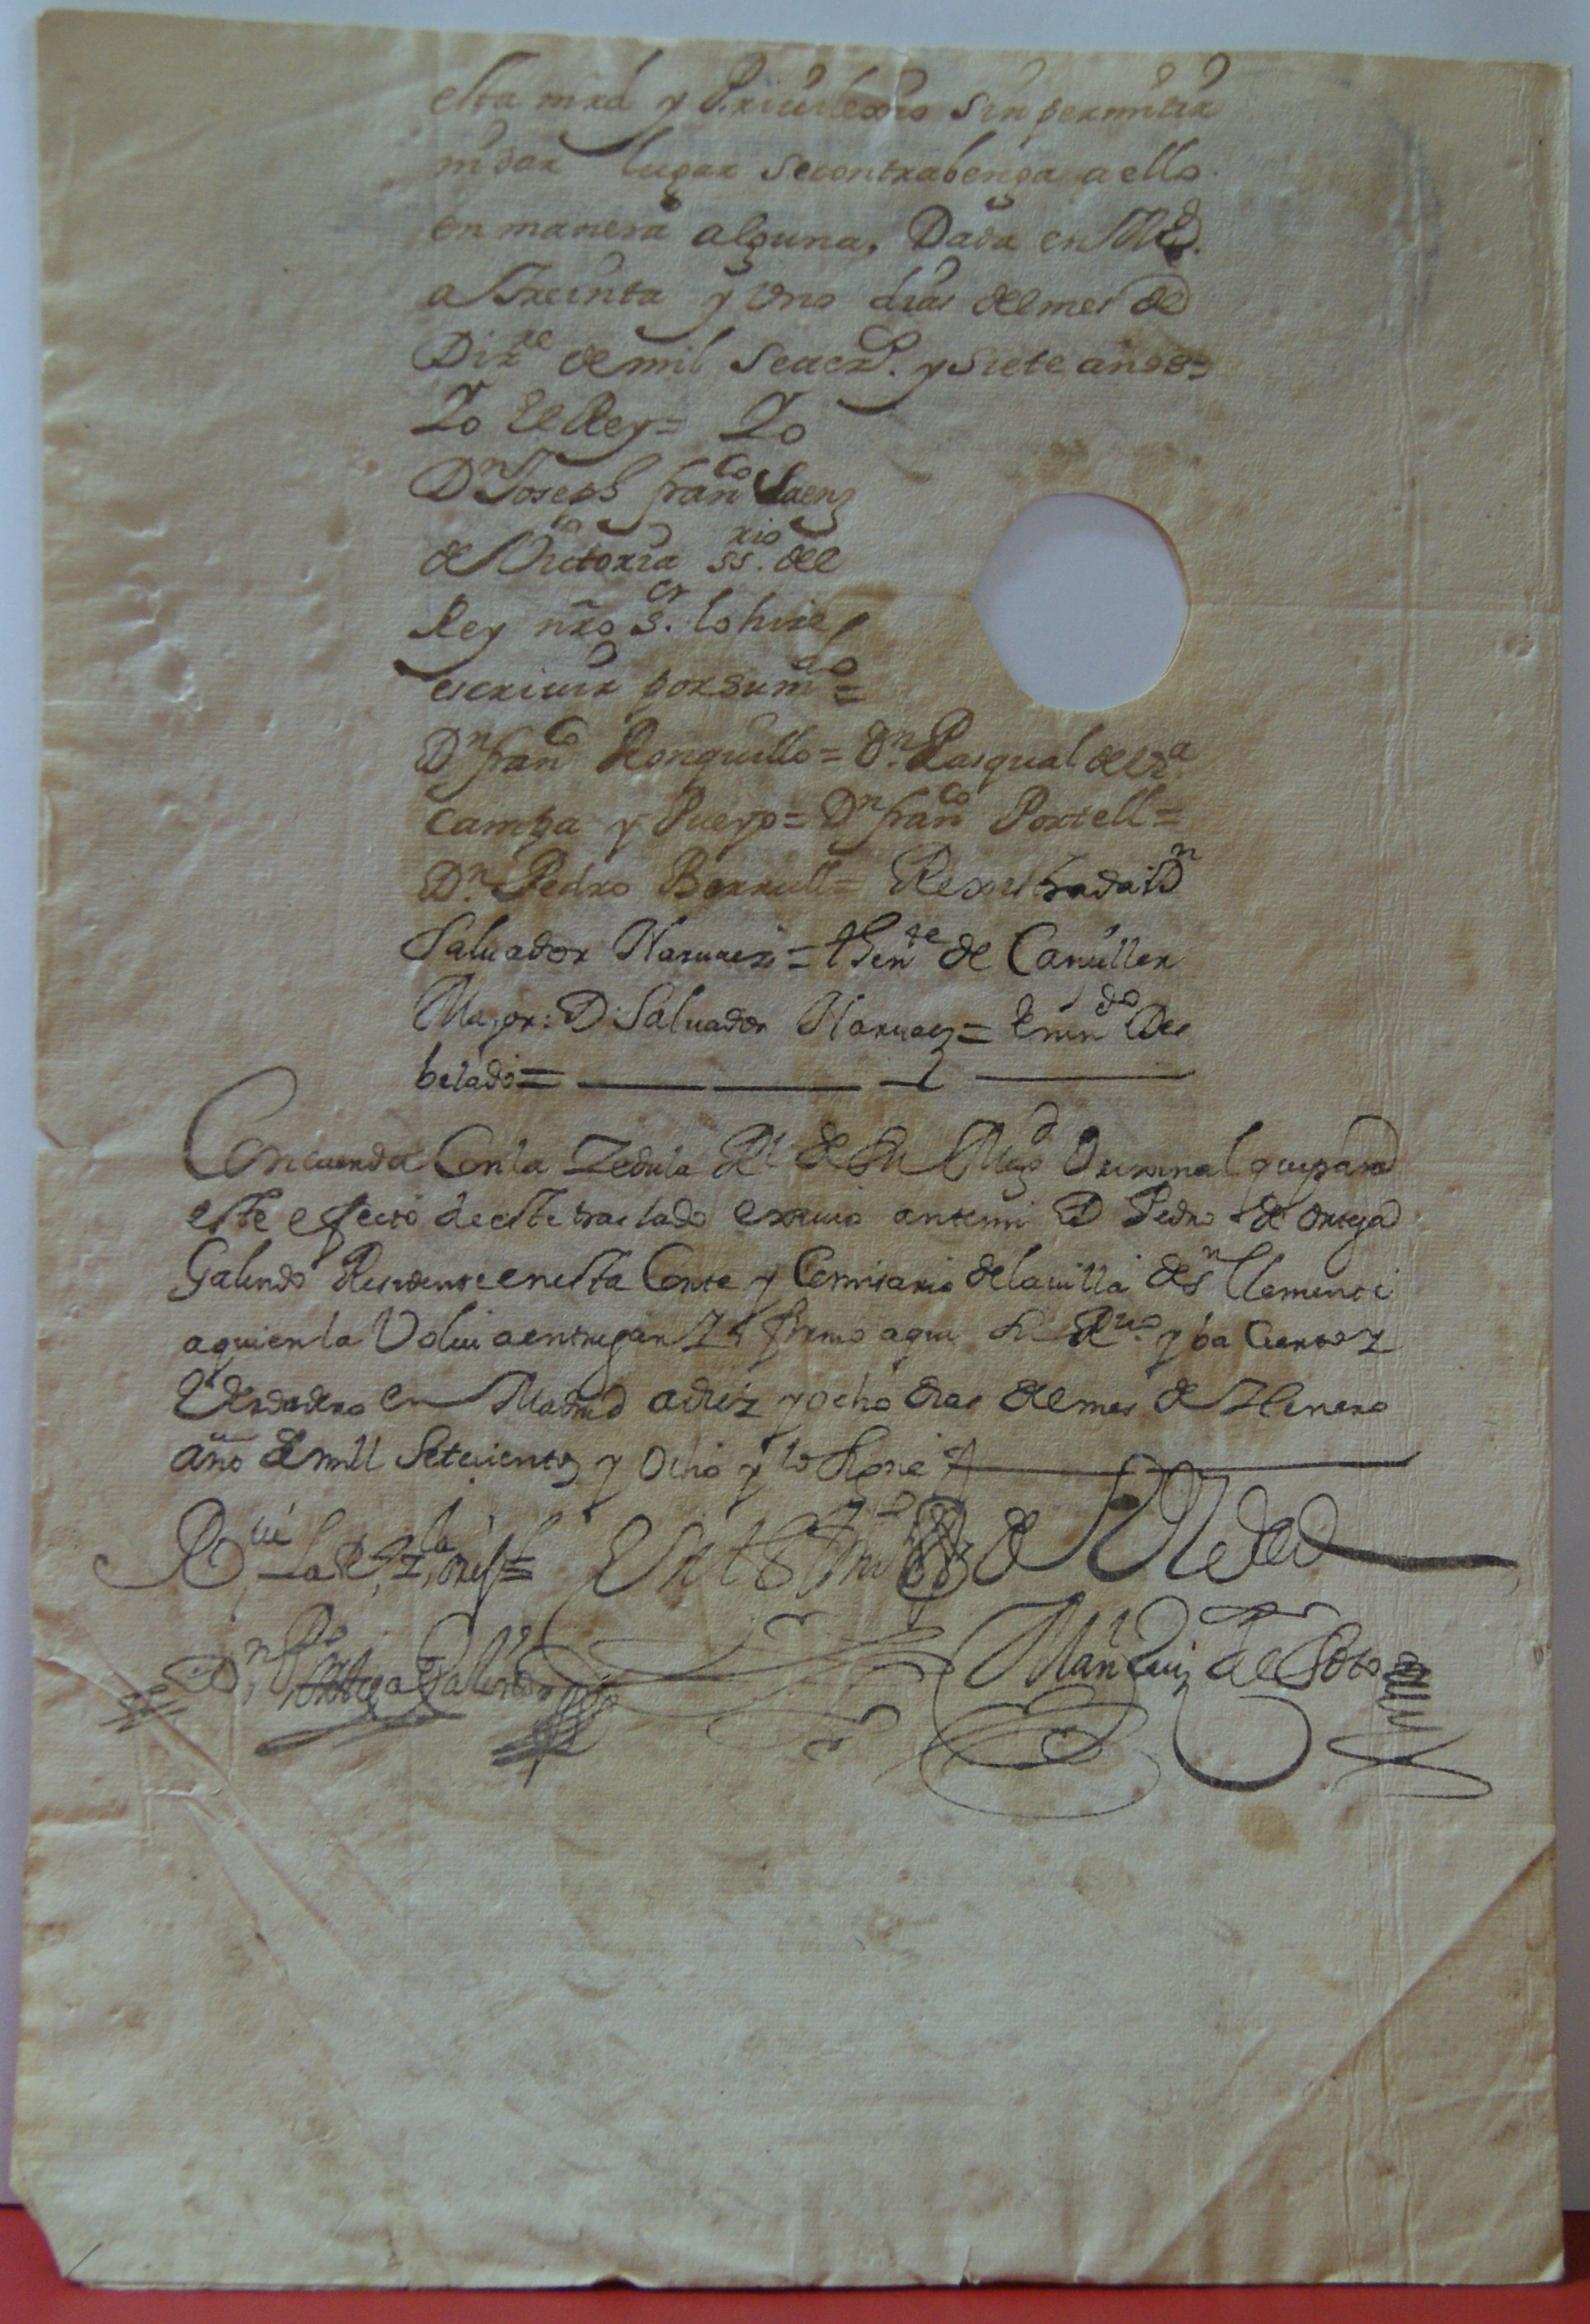 esta mrd y Priuilexio sin permitir
ni dar lugar se contrabenga a ello
en manera alguna, Dada en Md.
a Treinta y Uno dias del mes de
Dizre de mil Setecs. y Siete años=
Yo El Rey= Yo
Dn Joseph franco Saenz
de Victoria ssrio. del
Rey nro Sor. lo hize
escriuir por su mdo=
Dn franco Ronquillo= Dn. Pasqual de Va
campa y Pueyo= Dn franco Portell=
Dn. Pedro Borrull= Rexistrada Dn
Saluador Naruaez= thente de Canziller
Mayor: D. Saluador Naruaez= Enmdo Des
belado=
Concuerda Con la Zedula Rl de Su Magd Orixinal que para
este efecto de este traslado exiuio ante mi D Pedro de ortega
Galindo Residente en esta Corte y Comisario de la uilla de Sn Clemente
a quien la Volui a entregar Y firmo aqui su Ruo. y ba Cierto y
Verdadero en Madrid a diez y ocho dias del mes de Henero
año de mill Setecientos y Ocho y lo signé
Rui la Rl Zla orijl= En testimo de Verdad
Dn Po Ortega Galindo Man Ruiz de Soto